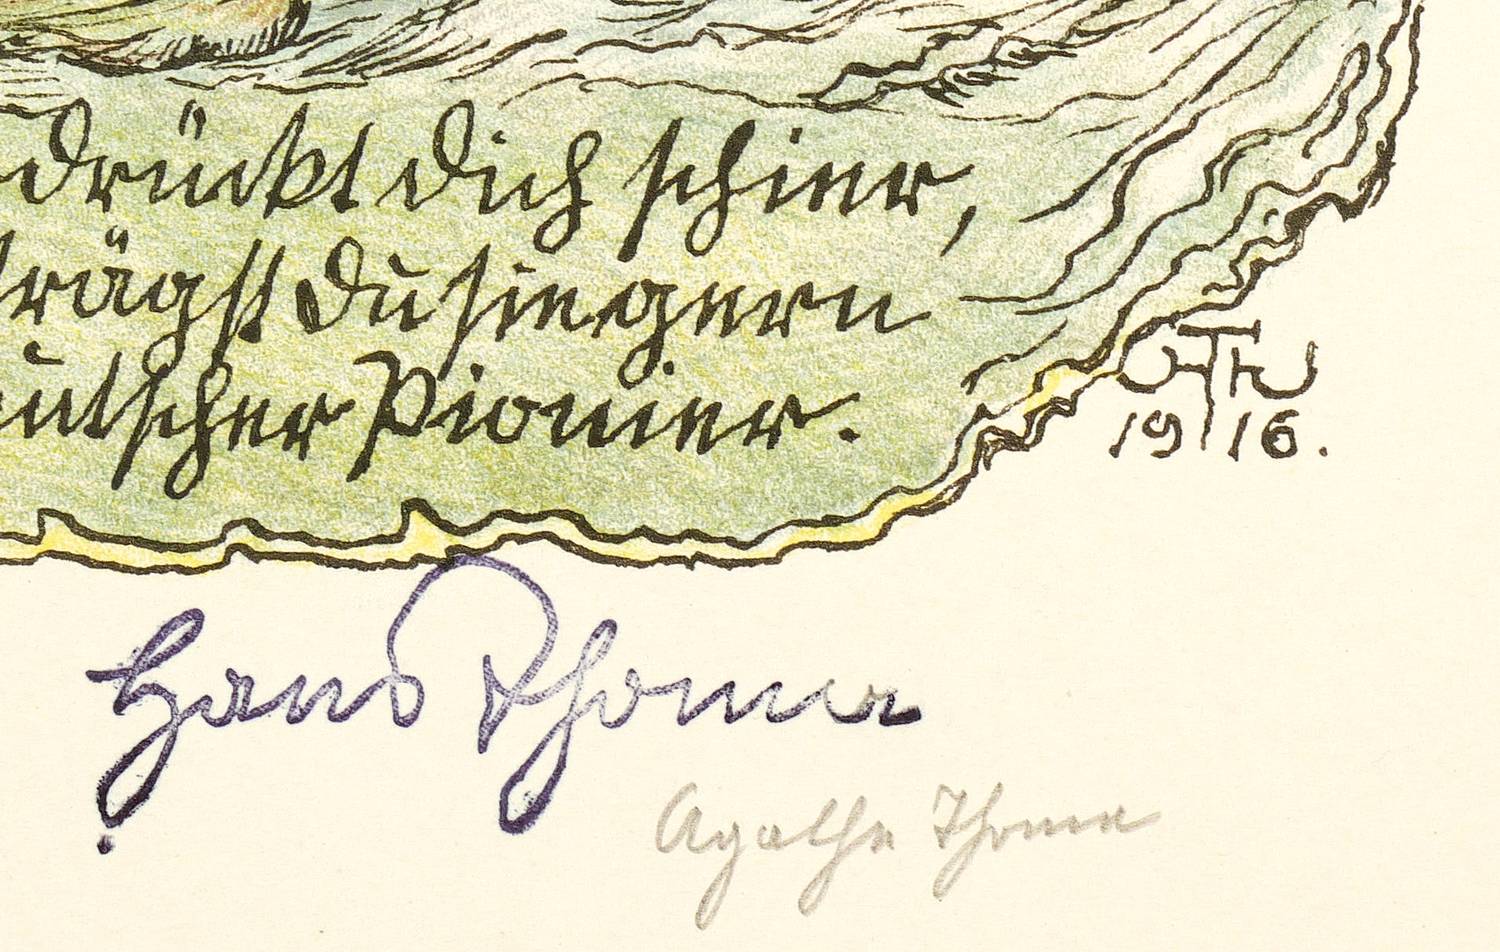 drückt dich schier,
trägst du sie gern
deutscher Pionier.
HTh
19 16.
Hans Thoma
Agathe Thoma